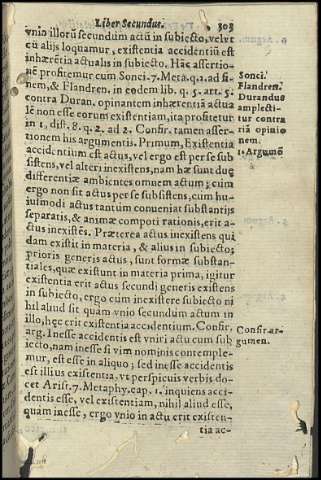 Liber Secundus. 303
vnio illorũ secundum actũ in subiecto, velut
cũ alijs loquamur, existentia accidentiũ est
inhærẽtia actualis in subiecto. Hãc assertio-
nẽ profitemur cum Sonci. 7. Meta. q. 2. ad fi-
nem, & Flandren. in eodem lib. q. 5. art. 5.
contra Duran. opinantem inhærentiã actua
lẽ non esse eorum existentiam, ita profitetur
in 1. dist. 8. q. 2. ad 2. Confir. tamen asser-
tionem his argumentis. Primum, Existentia
accidentium est actus, vel ergo est per se sub
sistens, vel alteri inexistens, nam hæ sunt duę
differentiæ ambientes omnem actum; cum
ergo non sit actus per se subsistens, cum hu-
iusmodi actus tantum conueniat substantijs
separatis, & animæ compoti rationis, erit a-
ctus inexistẽs. Præterea actus inexistens qui
dam existit in materia, & alius in subiecto;
prioris generis actus, sunt formæ substan-
tiales, quæ existunt in materia prima, igitur
existentia erit actus secundi generis existens
in subiecto, ergo cum inexistere subiecto ni
hil aliud sit quàm vnio secundum actum in
illo, hęc erit existentia accidentium. Confir.
arg. Inesse accidentis est vniri actu cum sub
iecto, nam inesse si vim nominis contemple-
mur, est esse in aliquo; sed inesse accidentis
est illius existentia, vt perspicuis verbis do-
cet Arist. 7. Metaphy. cap. 1. inquiens acci-
dentis esse, vel existentiam, nihil aliud esse,
quàm inesse, ergo vnio in actu erit existen-
tia ac-
Sonci.
Flandren.
Durandus
amplecti-
tur contra
riã opinio
nem.
1. Argumẽ
Confir ar-
gumen.